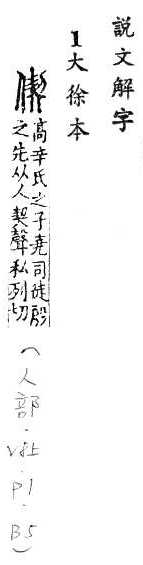 説文解字
1大徐本
偰 高辛氏之子堯司徒殷
之先从人契聲私列切
(人部.v8上.p1.B5)